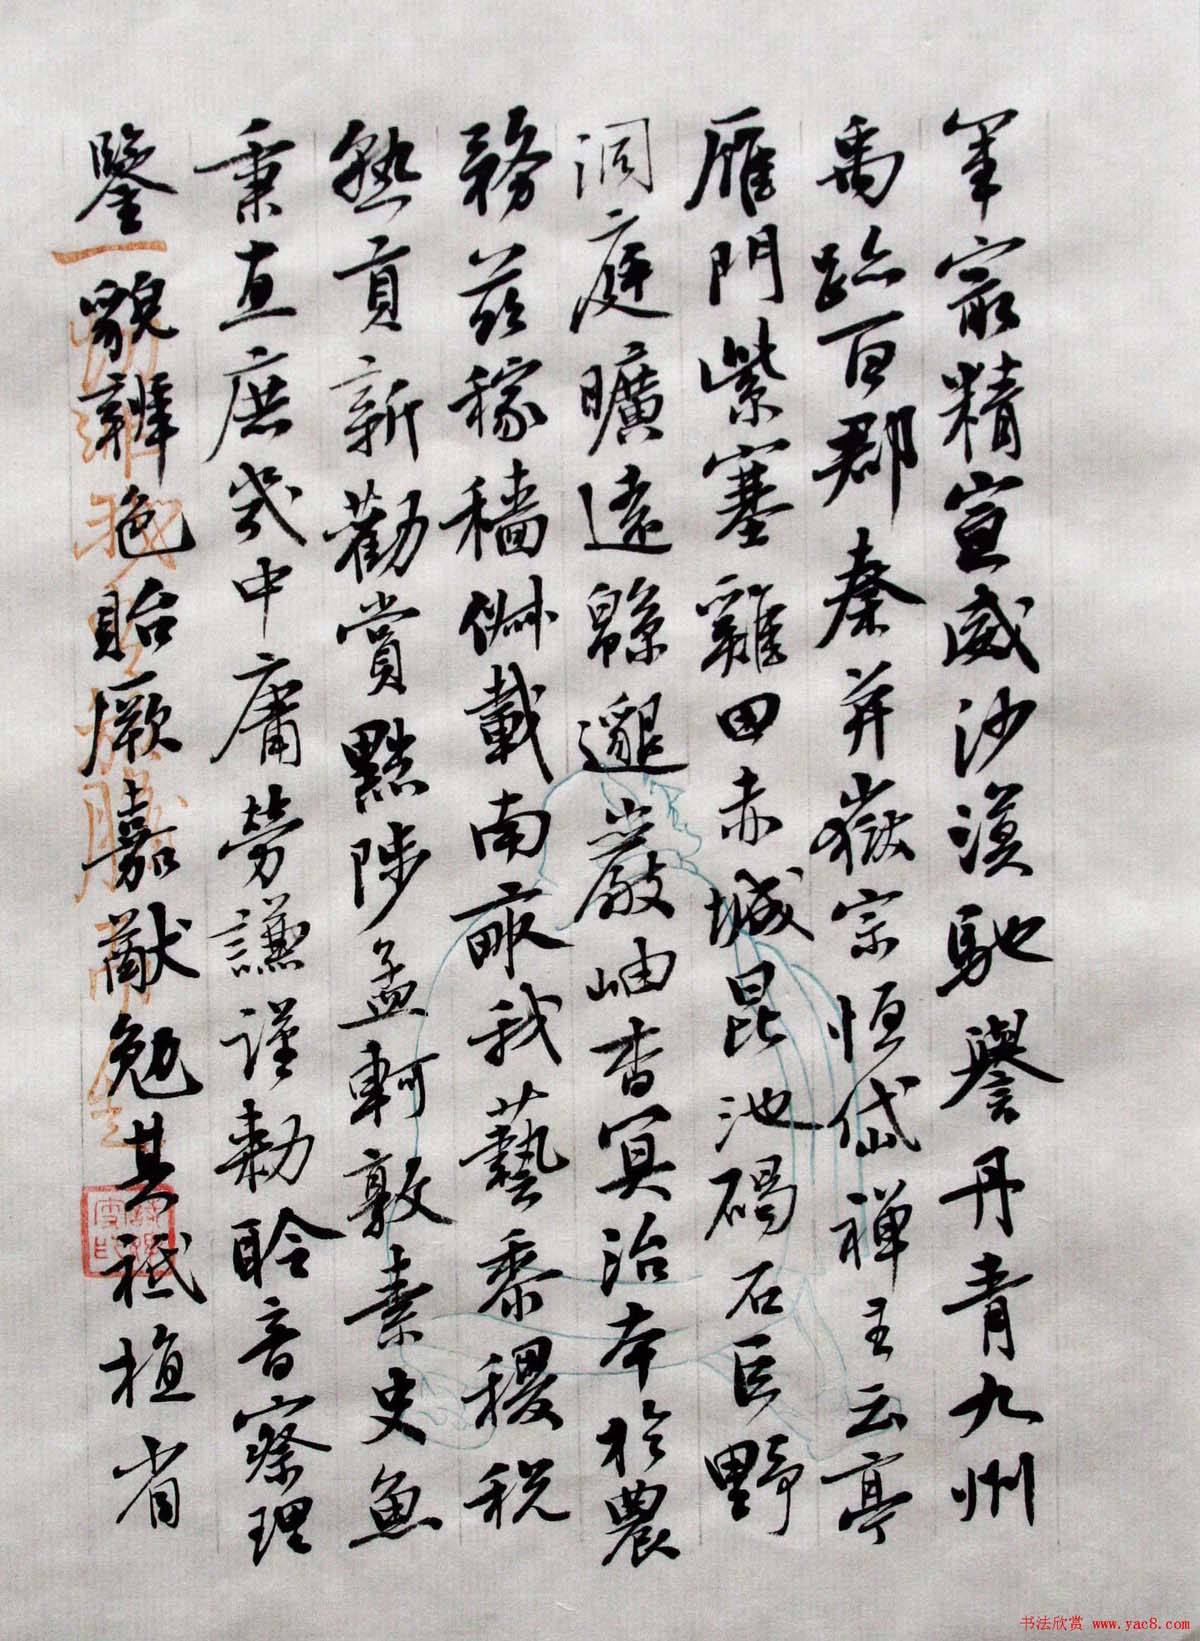 軍最精宣威沙漠馳譽丹青九州
禹跡百郡秦并嶽宗恒岱禪主云亭
雁門紫塞雞田赤城昆池碣石巨野
洞庭曠遠緜邈巖岫杳冥治本於農
務茲稼穡俶載南畝我藝黍稷稅
熟貢新勸賞黜陟孟軻敦素史魚
秉直庶幾中庸勞謙謹勅聆音察理
鑒貌辨色貽厥嘉猷勉其祗植省
书法欣赏 www.yac8.com